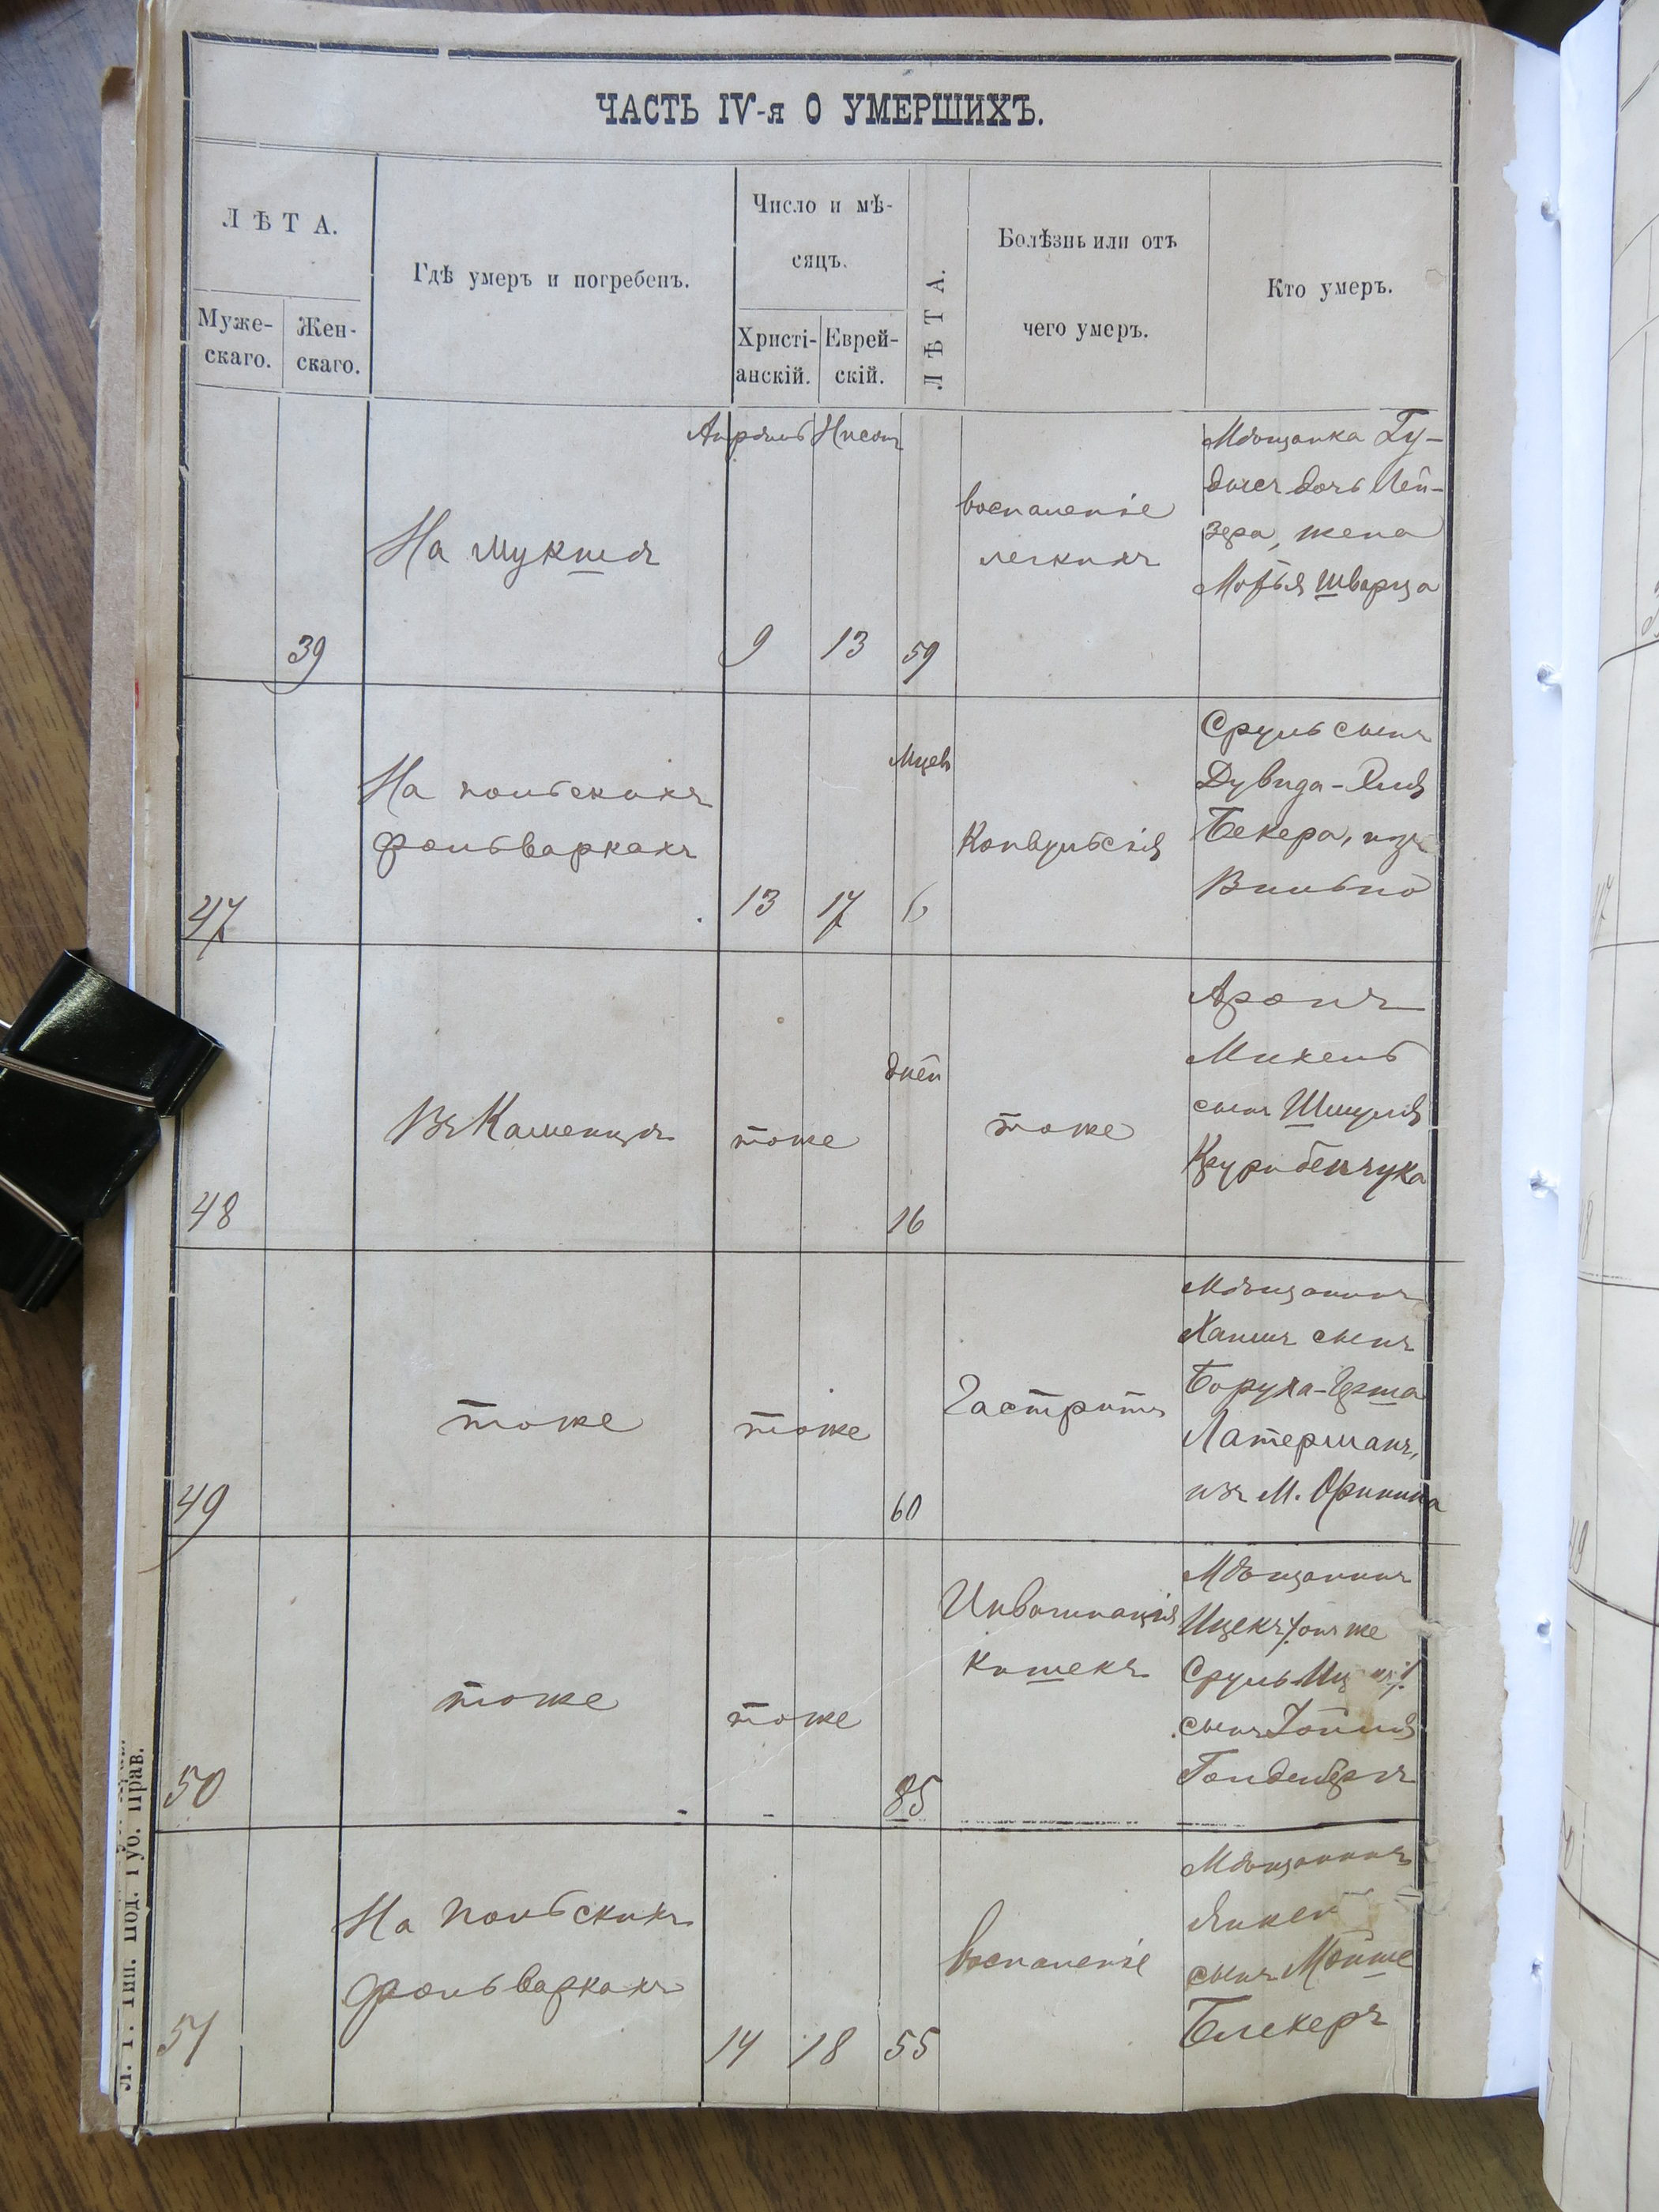 ЧАСТЬ IV-я О УМЕРШИХЪ.
ЛѢТА.
Муже-
скаго.
Жен-
скаго.
Гдѣ умеръ и погребенъ.
Число и мѣ-
сяцъ.
Христі-
анскій.
Еврей-
скій.
ЛѢТА.
Болѣзнь или отъ
чего умеръ.
Кто умеръ.
39
На Мукшѣ
Апрѣль Нисон
9 13 59
воспаленіе
легкихъ
Мѣщанка Гу-
дись дочь Лей-
зера, жена
Мотья Шварца
47
На польскихъ
фольваркахъ
13 17
Мцев
6
Конвульсія
Сруль сынъ
Дувида-Эля
Бекера, изъ
Вильно
48
Въ Каменцѣ
тоже
дней
16
тоже
Аронъ
Михель
сынъ Шмуля
49
тоже
тоже
60
Гастритъ
Мѣщанинъ
Хаимъ сынъ
Боруха-Герша
Латерманъ,
изъ М. Оринина
50
тоже
тоже
85
Инвагинація
кишекъ
Мѣщанинъ
Ицекъ /онъ же
Сруль-Иц
сынъ Іойля
Гольденбергъ
51
На польскихъ
фольваркахъ
14 18 55
воспаленіе
Мѣщанинъ
Янкель
сынъ Мойше
Блекеръ
Л. Г. Тип. Под. Губ. Прав.